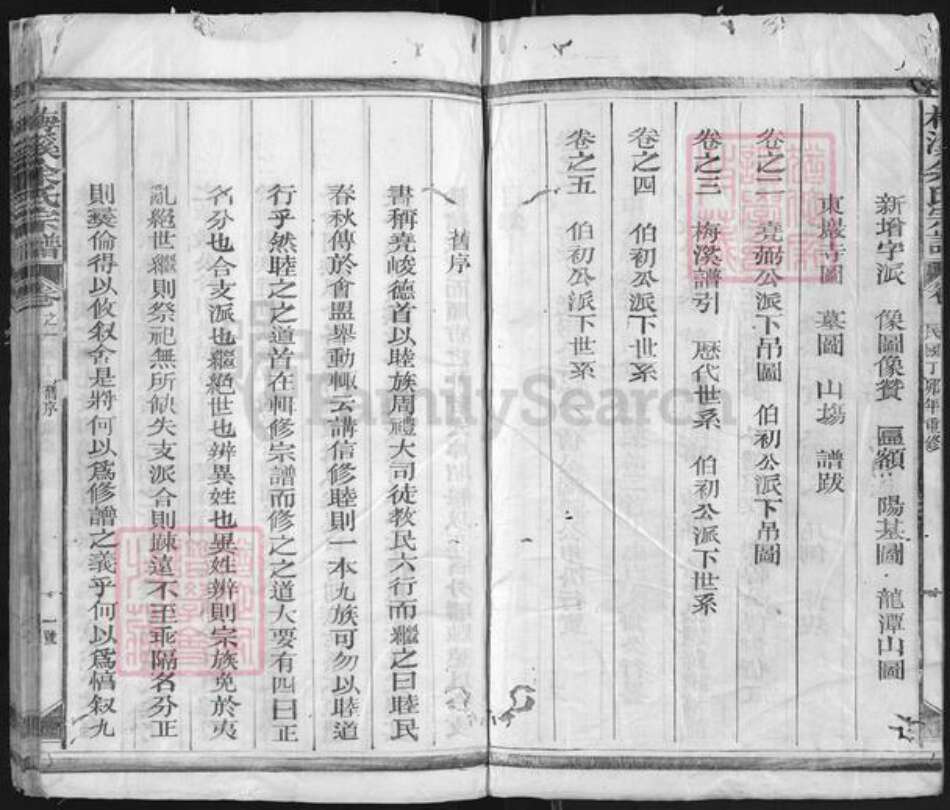 民國丁卯年重修
新增字派 像圖像贊 匾額 陽基圖 龍潭山圖
東巖寺圖 墓圖 山塲 譜跋
卷之二 堯弼公派下吊圖 伯初公派下吊圖
卷之三 梅溪譜引 歷代世系 伯初公派下世系
卷之四 伯初公派下世系
卷之五 伯初公派下世系
舊序
書稱堯峻德首以睦族周禮大司徒教民六行而繼之曰睦民
春秋傳於會盟舉動輒云講信修睦則一本九族可勿以睦道
行乎然睦之之道首在輯修宗譜而修之之道大要有四曰正
名分也合支派也繼絕世也辨異姓也異姓辨則宗族免於夷
亂絕世繼則祭祀無所缺失支派合則踈遠不至乖隔名分正
則彜倫得以攸叙舍是將何以爲修譜之義乎何以爲惇叙九
梅溪余氏宗譜 卷之一 舊序 一號
FamilySearch